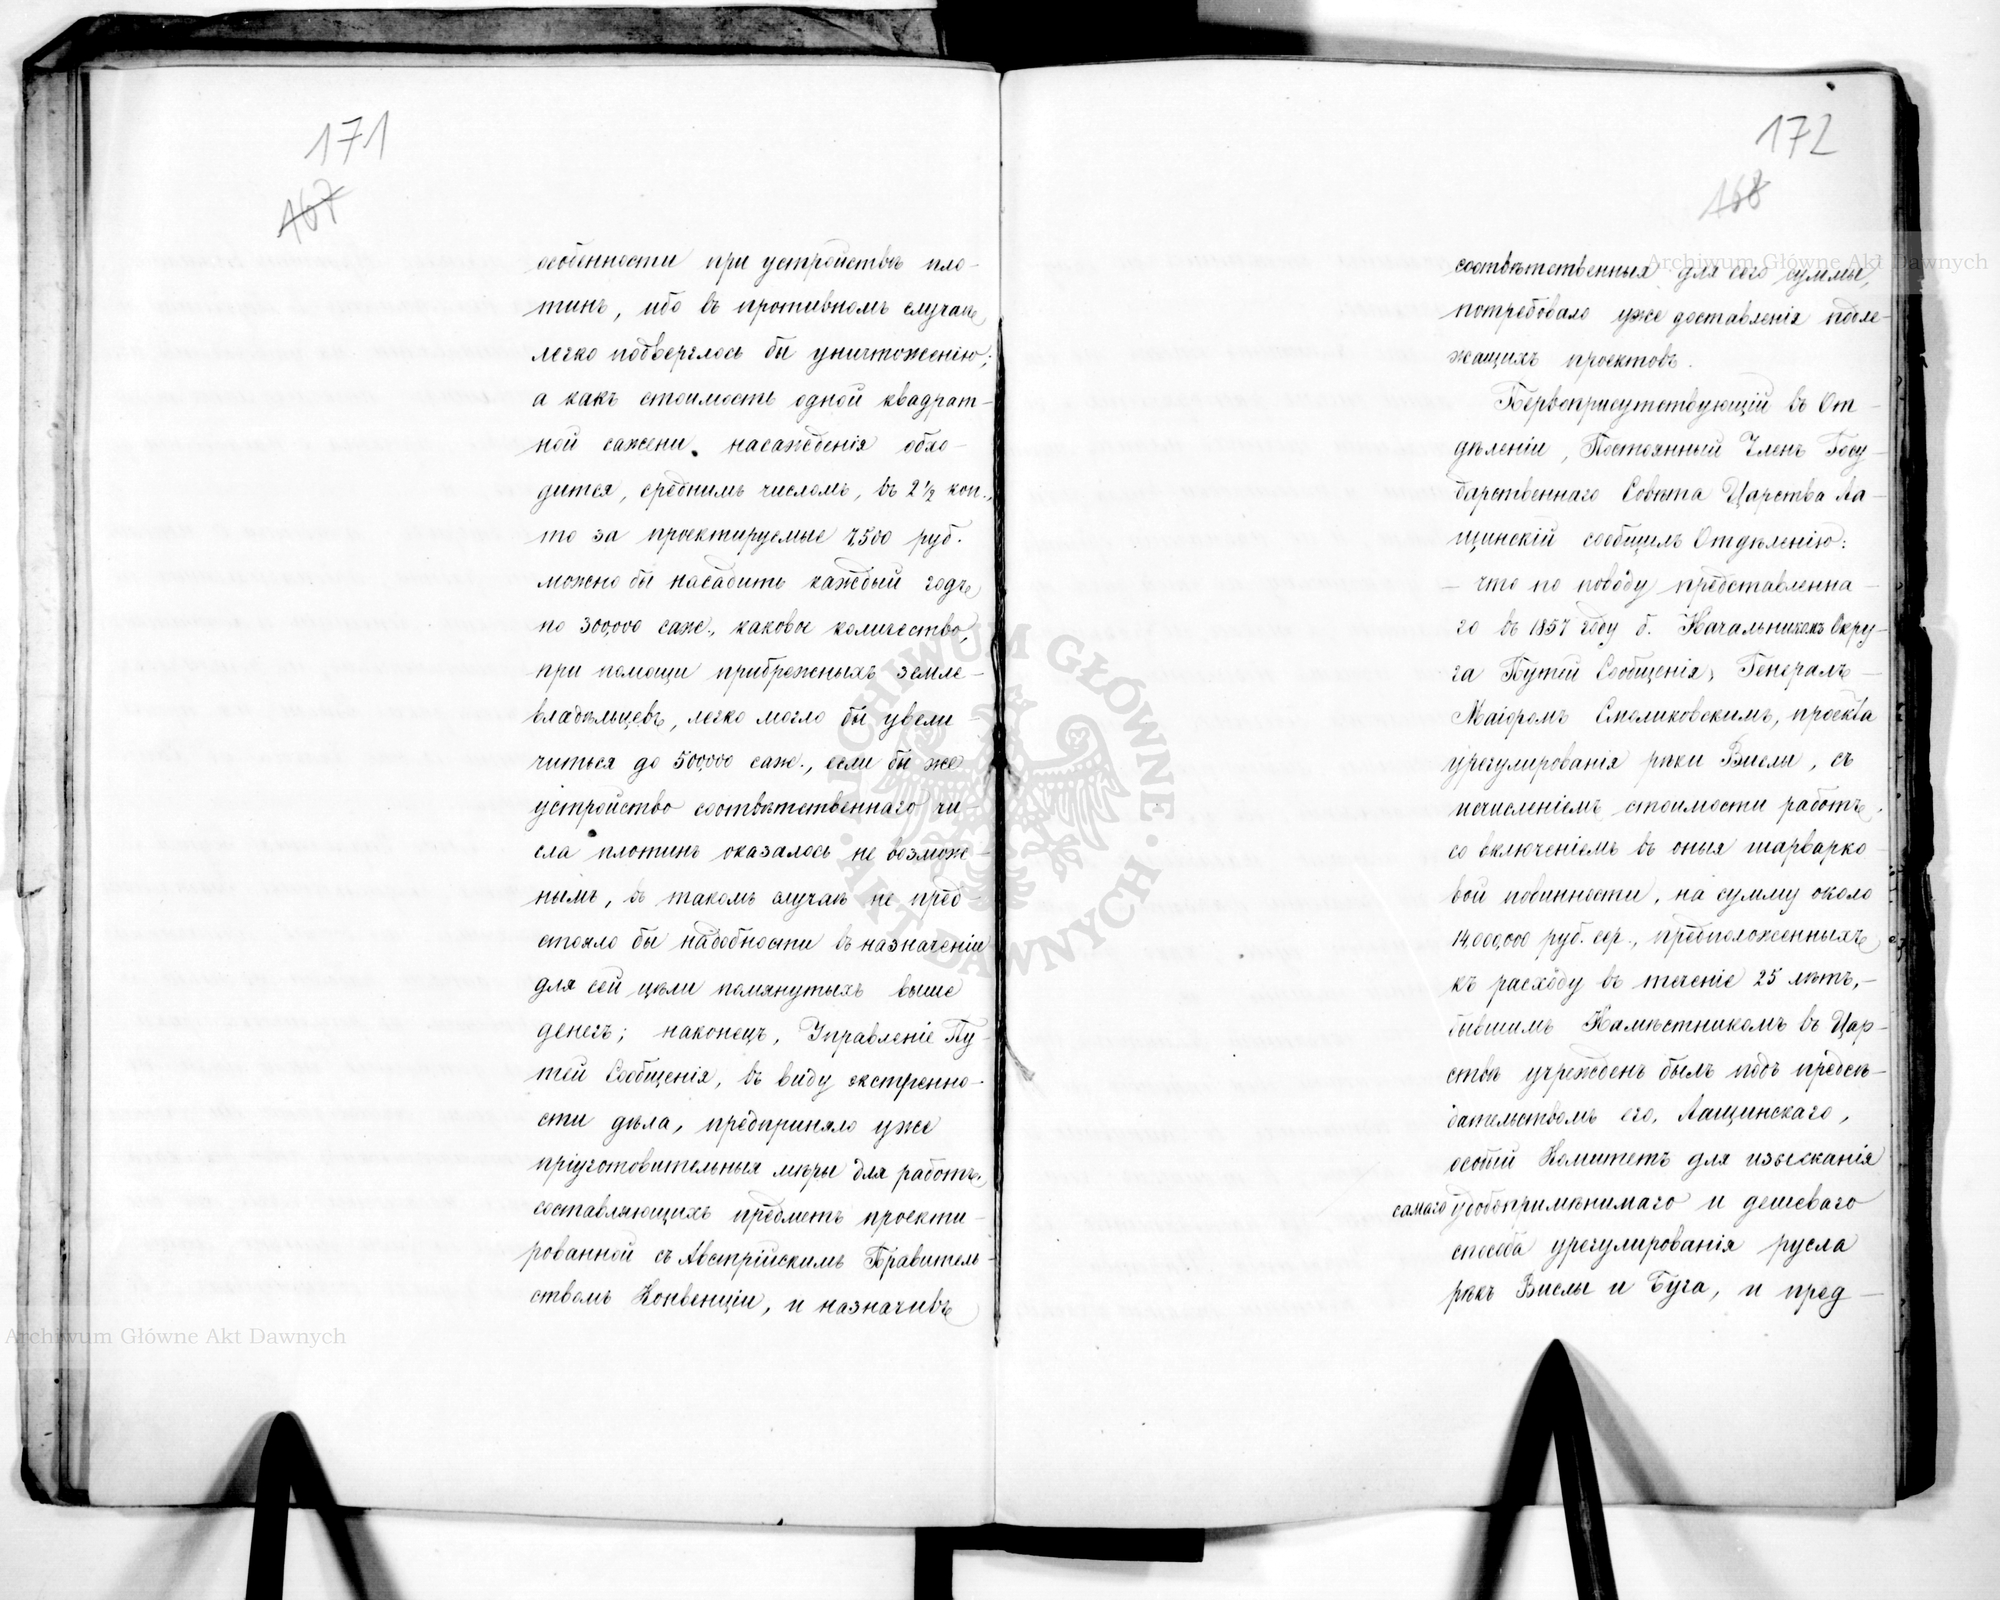 171
167
особенности при устройствѣ пло-
тинъ, ибо въ противномъ случаѣ
легко подверглось бы уничтоженію;
а какъ стоимость одной квадрат-
ной сажени насажденія обхо-
дится, среднимъ числомъ, въ 2 1/2 коп.,
то за проектируемые 7500 руб.
можно бы насадить каждый годъ
по 300,000 саж., каковое количество,
при помощи прибрежныхъ земле-
владѣльцевъ, легко могло бы увели-
читься до 500,000 саж., если бы же
устройство соотвѣтственнаго чи-
сла плотинъ оказалось не возмож-
нымъ, въ такомъ случаѣ не пред-
стояло бы надобности въ назначеніи
для сей цѣли помянутыхъ выше
денегъ; наконецъ, Управленіе Пу-
тей Сообщенія, въ виду экстренно-
сти дѣла, предприняло уже
пріуготовительныя мѣры для работъ,
составляющихъ предметъ проекти-
рованной съ Австрійскимъ Правитель-
ствомъ Конвенціи, и назначивъ
172
168
соотвѣтственныя для сего суммы,
потребовало уже доставленія подле-
жащихъ проектовъ.
Первоприсутствующій въ От-
дѣленіи, Постоянный Членъ Госу-
дарственнаго Совѣта Царства Ла-
щинскій сообщилъ Отдѣленію:
— что по поводу представленна-
го въ 1857 году б. Начальникомъ Окру-
га Путей Сообщенія, Генералъ-
Маіоромъ Смоликовскимъ, проекта
урегулированія рѣки Вислы, съ
исчисленіемъ стоимости работъ,
со включеніемъ въ оныя шарварко-
вой повинности, на сумму около
14,000,000 руб. сер., предположенныхъ
къ расходу въ теченіе 25 лѣтъ,-
бывшимъ Намѣстникомъ въ Цар-
ствѣ учрежденъ былъ подъ предсѣ-
дательствомъ его, Лащинскаго,
особый Комитетъ для изысканія
самаго удобопримѣнимаго и дешеваго
способа урегулированія русла
рѣкъ Вислы и Буга, и пред-
Archiwum Główne Akt Dawnych
Archiwum Główne Akt Dawnych
ARCHIWUM GŁÓWNE · AKT DAWNYCH ·